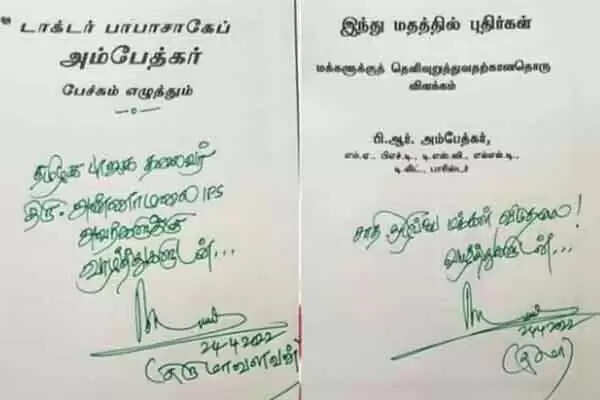 டாக்டர் பாபாசாகேப்
அம்பேத்கர்
பேச்சும் எழுத்தும்
தமிழக பாஜக தலைவர்
திரு. அண்ணாமலை IPS
அவர்களுக்கு
வாழ்த்துகளுடன்...
24-4-2022
(திருமாவளவன்)
இந்து மதத்தில் புதிர்கள்
மக்களுக்குத் தெளிவுறுத்துவதற்கானதொரு
விளக்கம்
பி.ஆர். அம்பேத்கர்,
எம்.ஏ., பிஎச்.டி., டி.எஸ்.ஸி., எல்எல்.டி.,
டி.லிட்., பாரிஸ்டர்
சாதி ஒழிப்பே மக்கள் விடுதலை!
வாழ்த்துகளுடன்...
24-4-2022
(திருமா)